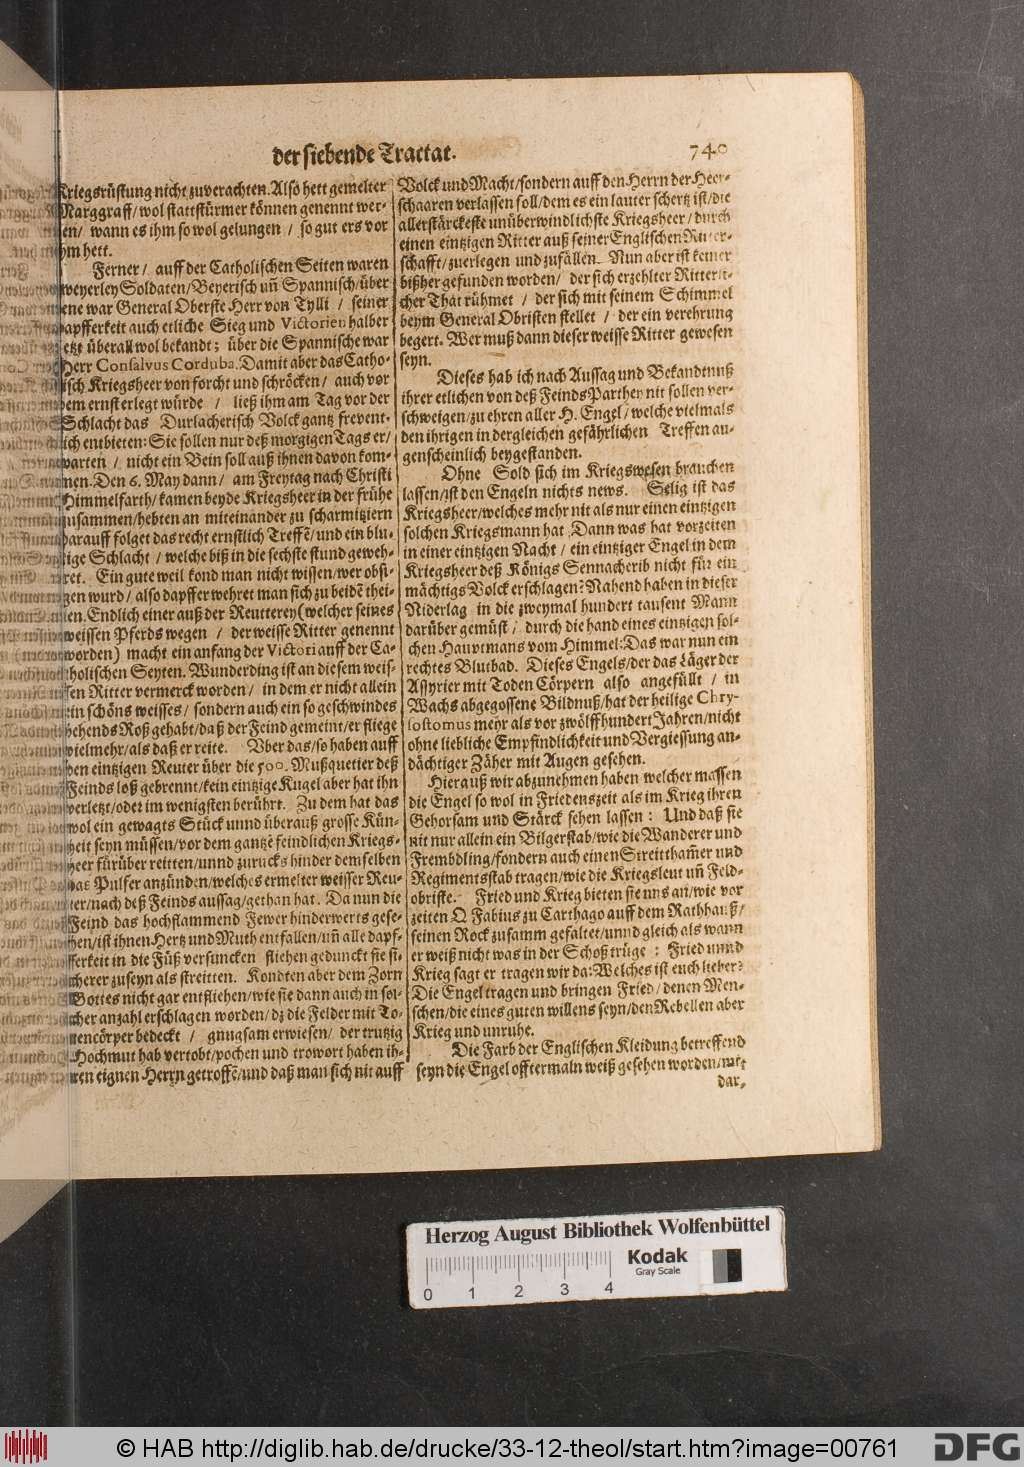 der siebende Tractat.
740
Kriegsrüstung nicht zuverachten. Also hett gemelter
Marggraff/ wol stattstürmer können genennt wer-
en/ wann es ihm so wol gelungen / so gut ers vor
hm hett.
Ferner/ auff der Catholischen Seiten waren
weyerley Soldaten/ Beyerisch uñ Spannisch/ über
ene war General Oberste Herr von Tylli / seiner
apfferkeit auch etliche Sieg und Victorien halber
etzt überall wol bekandt; über die Spannische war
Herr Consalvus Corduba. Damit aber das Catho-
isch Kriegsheer von forcht und schröcken/ auch vor
em ernst erlegt würde / ließ ihm am Tag vor der
Schlacht das Durlacherisch Volck gantz frevent-
ich entbieten: Sie sollen nur deß morgigen Tags er/
warten / nicht ein Bein soll auß ihnen davon kom-
nen. Den 6. May dann/ am Freytag nach Christi
Himmelfarth/ kamen beyde Kriegsheer in der frühe
zusammen/ hebten an miteinander zu scharmitziern
arauff folget das recht ernstlich Treffẽ/ und ein blu-
ige Schlacht / welche biß in die sechste stund geweh-
ret. Ein gute weil kond man nicht wissen/ wer obsi-
gen wurd/ also dapffer wehret man sich zu beidẽ thei-
en. Endlich einer auß der Reutterey (welcher seines
weissen Pferds wegen / der weisse Ritter genennt
worden) macht ein anfang der Victori auff der Ca-
holischen Seyten. Wunderding ist an diesem weis-
sen Ritter vermerckt worden/ in dem er nicht allein
ein schöns weisses/ sondern auch ein so geschwindes
behends Roß gehabt/ daß der Feind gemeint/ er fliege
vielmehr/ als daß er reite. Vber das/ so haben auff
en eintzigen Reuter über die 500. Mußquetier deß
Feinds loß gebrennt/ kein eintzige Kugel aber hat ihn
verletzt/ oder im wenigsten berührt. Zu dem hat das
wol ein gewagts Stück unnd überauß grosse Kün-
heit seyn müssen/ vor dem gantzẽ feindlichen Kriegs-
heer fürüber reitten/ unnd zurucks hinder demselben
as Pulfer anzünden/ welches ermelter weisser Reu-
ter/ nach deß Feinds aussag/ gethan hat. Da nun die
Feind das hochflammend Fewer hinderwerts gese-
hen/ ist ihnen Hertz und Muth entfallen/ uñ alle dapf-
ferkeit in die Füß versuncken fliehen gedunckt sie si-
cherer zuseyn als streitten. Kondten aber dem Zorn
Gottes nicht gar entfliehen/ wie sie dann auch in sol-
cher anzahl erschlagen worden/ dz die Felder mit To-
encörper bedeckt / gnugsam erwiesen/ der trutzig
Hochmut hab vertobt/ pochen und trowort haben ih-
ren eignen Herrn getroffẽ/ und daß man sich nit auff
Volck und Macht/ sondern auff den Herrn der Heer-
schaaren verlassen soll/ dem es ein lauter schertz ist/ die
allerstärckeste unüberwindlichste Kriegsheer/ durch
einen eintzigen Ritter auß seiner Englischen Ritter-
schafft/ zuerlegen und zufällen. Nun aber ist keiner
bißher gefunden worden/ der sich erzehlter Ritterli-
cher That rühmet / der sich mit seinem Schimmel
beym General Obristen stellet / der ein verehrung
begert. Wer muß dann dieser weisse Ritter gewesen
seyn.
Dieses hab ich nach Aussag und Bekandtnuß
ihrer etlichen von deß Feinds Parthey nit sollen ver-
schweigen/ zu ehren aller H. Engel/ welche vielmals
den ihrigen in dergleichen gefährlichen Treffen au-
genscheinlich beygestanden.
Ohne Sold sich im Kriegswesen brauchen
lassen/ ist den Engeln nichts news. Selig ist das
Kriegsheer/ welches mehr nit als nur einen eintzigen
solchen Kriegsmann hat. Dann was hat vorzeiten
in einer eintzigen Nacht/ ein eintziger Engel in dem
Kriegsheer deß Königs Sennacherib nicht für ein
mächtigs Volck erschlagen? Nahend haben in dieser
Niderlag in die zweymal hundert tausent Mann
darüber gemüst/ durch die hand eines eintzigen sol-
chen Hauptmans vom Himmel: Das war nun ein
rechtes Blutbad. Dieses Engels/ der das Läger der
Assyrier mit Toden Cörpern also angefüllt / in
Wachs abgegossene Bildnuß/ hat der heilige Chry-
sostomus mehr als vor zwölffhundert Jahren/ nicht
ohne liebliche Empfindlichkeit und Vergiessung an-
dächtiger Zäher mit Augen gesehen.
Hierauß wir abzunehmen haben welcher massen
die Engel so wol in Friedenszeit als im Krieg ihren
Gehorsam und Stärck sehen lassen: Und daß sie
nit nur allein ein Bilgerstab/ wie die Wanderer und
Frembdling/ sondern auch einen Streittham̃er und
Regimentsstab tragen/ wie die Kriegsleut uñ Feld-
obriste. Fried und Krieg bieten sie uns an/ wie vor
zeiten Q Fabius zu Carthago auff dem Rathhauß/
seinen Rock zusamm gefaltet/ unnd gleich als wann
er weiß nicht was in der Schoß trüge: Fried unnd
Krieg sagt er tragen wir da: Welches ist euch lieber?
Die Engel tragen und bringen Fried/ denen Men-
schen/ die eines guten willens seyn/ den Rebellen aber
Krieg und unruhe.
Die Farb der Englischen Kleidung betreffend
seyn die Engel offtermaln weiß gesehen worden/
dar,
Herzog August Bibliothek Wolfenbüttel
Kodak
Gray Scale
0 1 2 3 4
© HAB http://diglib.hab.de/drucke/33-12-theol/start.htm?image=00761
DFG